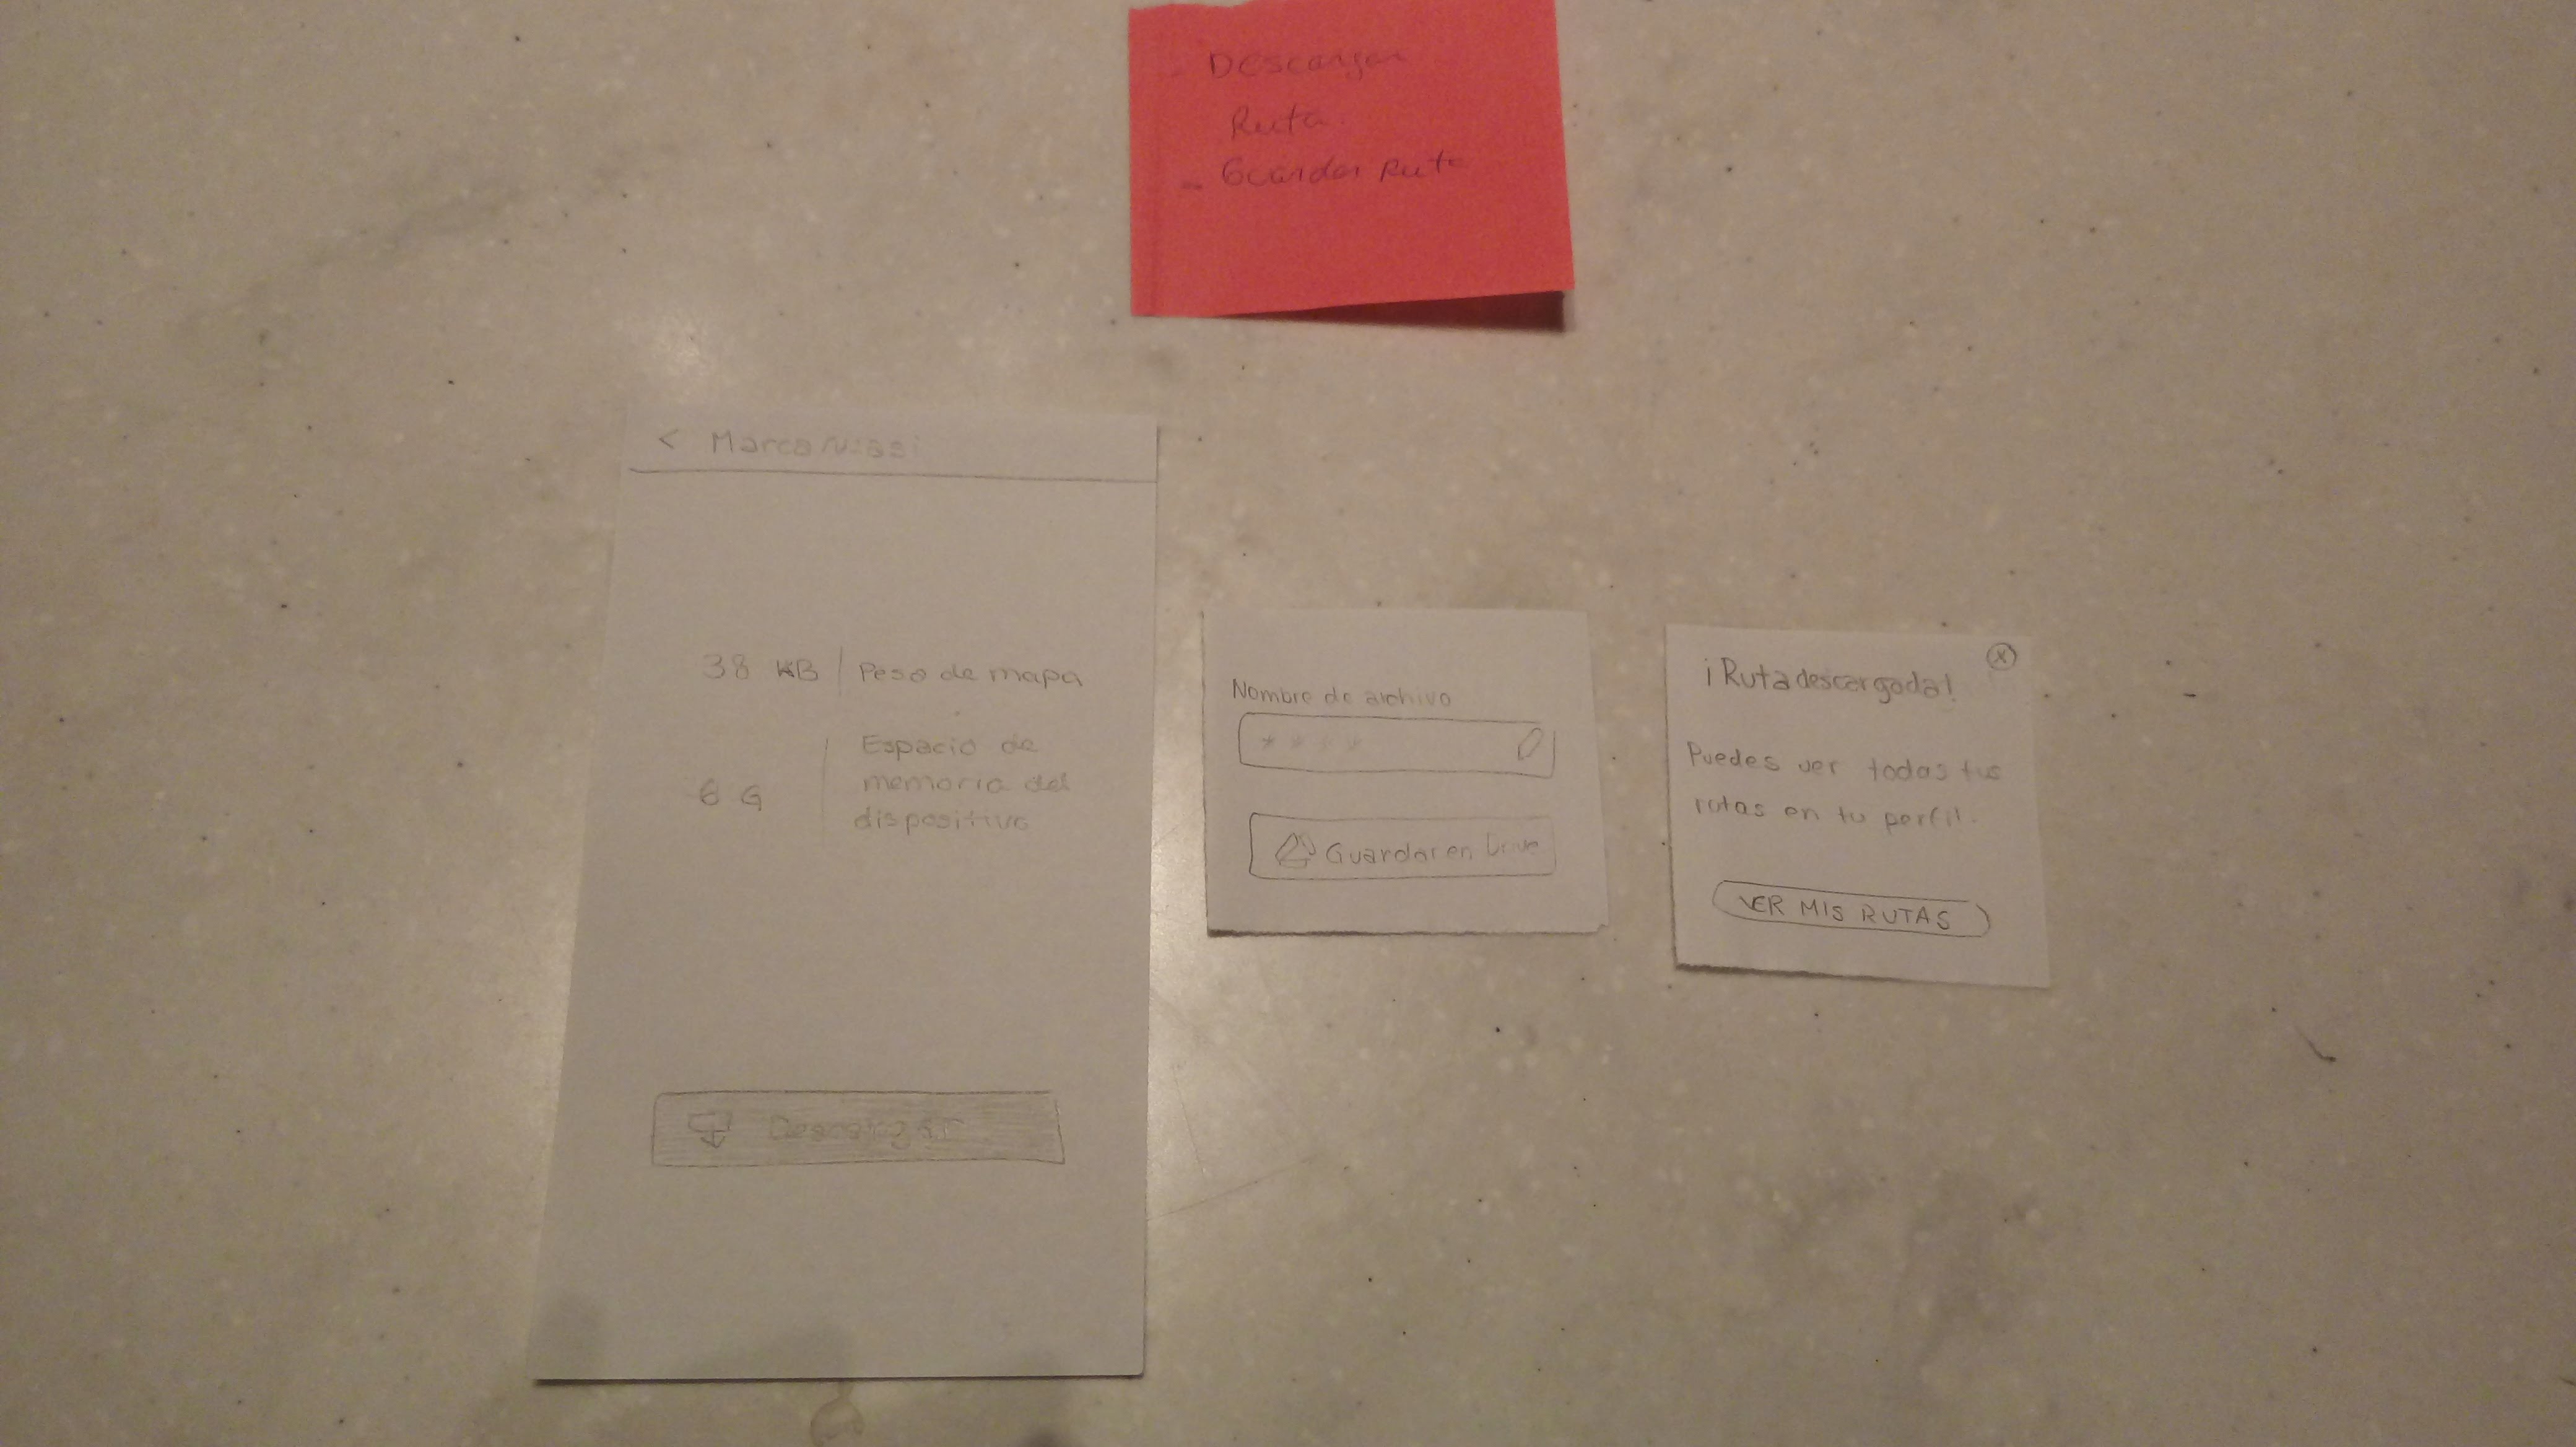 - Descargar
Ruta
- Guardar Ruta
< Marcahuasi
38 KB | Peso de mapa
6 G | Espacio de
memoria del
dispositivo
Descargar
Nombre de archivo
* * * *
Guardar en Drive
¡Ruta descargada!
X
Puedes ver todas tus
rutas en tu perfil.
VER MIS RUTAS